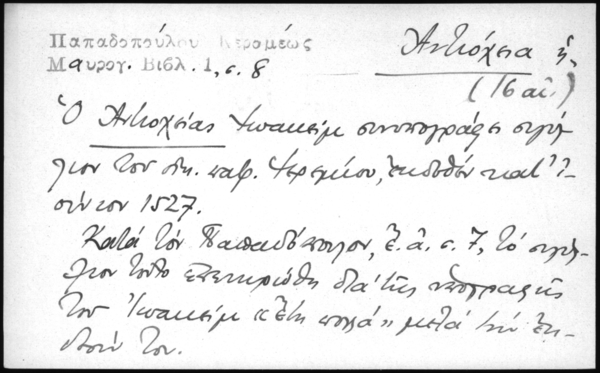 Παπαδοπούλου Κεραμέως
Μαυρογ. Βιβλ. 1, σ. 8
Ἀντιόχεια ἡ,
(16 αἰ.)
Ὁ Ἀντιοχείας Ἰωακεὶμ συνυπογράφει σιγίλ-
λιον τοῦ οἰκ. πατρ. Ἱερεμίου, ἐκδοθὲν κατ' Ἰ-
ούνιον 1527.
Κατὰ τὸν Παπαδόπουλον, ἔ. ἀ. σ. 7, τὸ σιγίλ-
λιον τοῦτο ἐπεκυρώθη διὰ τῆς ὑπογραφῆς
τοῦ Ἰωακεὶμ «ἔτη πολλὰ» μετὰ τὴν ἔκ-
δοσίν του.